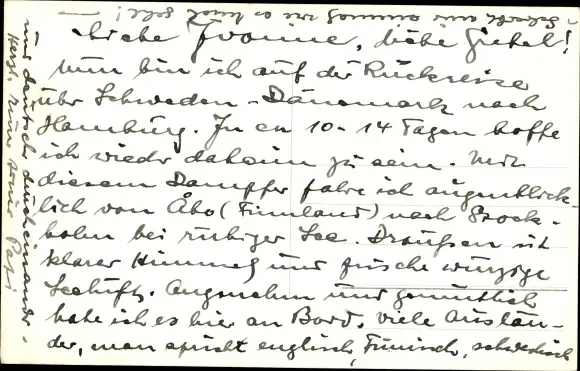 Liebe Yvonne, liebe Gretel!
Nun bin ich auf der Rückreise
über Schweden - Dänemark nach
Hamburg. In ca 10-14 Tagen hoffe
ich wieder daheim zu sein. Mit
diesem Dampfer fahre ich augenblick-
lich von Åbo (Finnland) nach Stock-
holm bei ruhiger See. Draußen ist
klarer Himmel und frische würzige
Seeluft. Angenehm und gemütlich
habe ich es hier an Bord. Viele Auslän-
der, man spricht englisch, Finnisch, schwedisch
und deutsch durcheinander.
Herzl. Papi
Schreibt mir einmal wie es Euch geht!